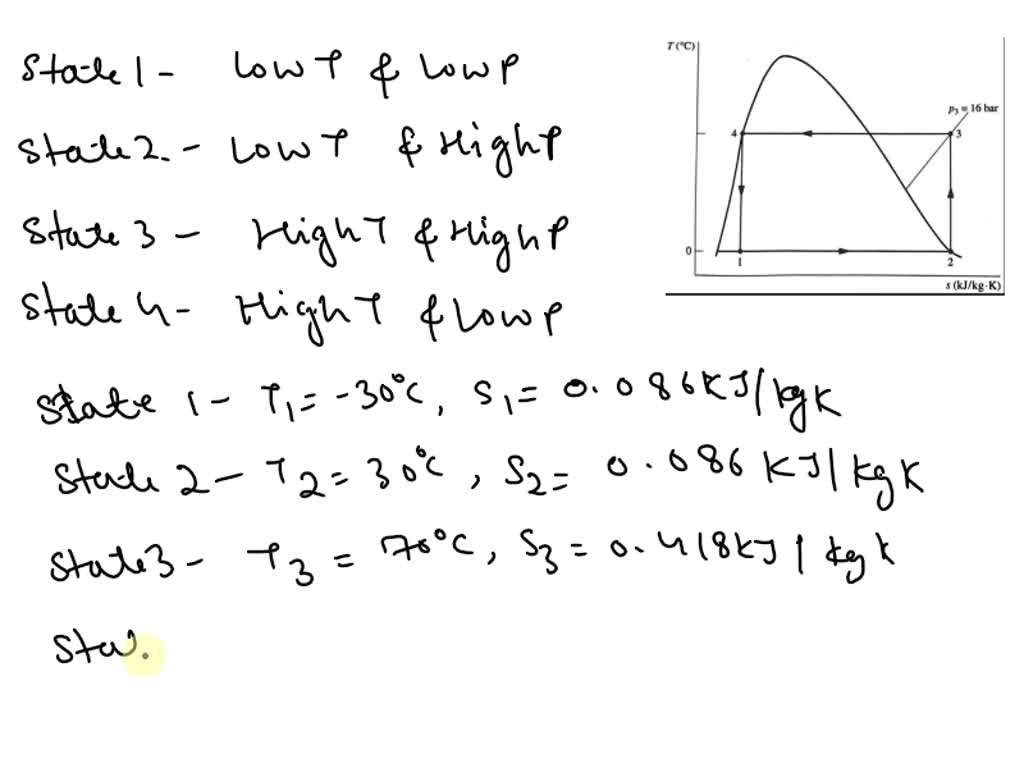 State 1 - Low T & Low P
State 2. - Low T & High P
State 3 - High T & High P
State 4 - High T & Low P
State 1 - T₁ = -30°C, S₁ = 0.086 KJ/kg K
State 2 - T₂ = 30°C, S₂ = 0.086 KJ/kg K
State 3 - T₃ = 70°C, S₃ = 0.418 kJ/kg K
Sta
T (°C)
p₃ = 16 bar
4
3
0
1
2
s (kJ/kg·K)